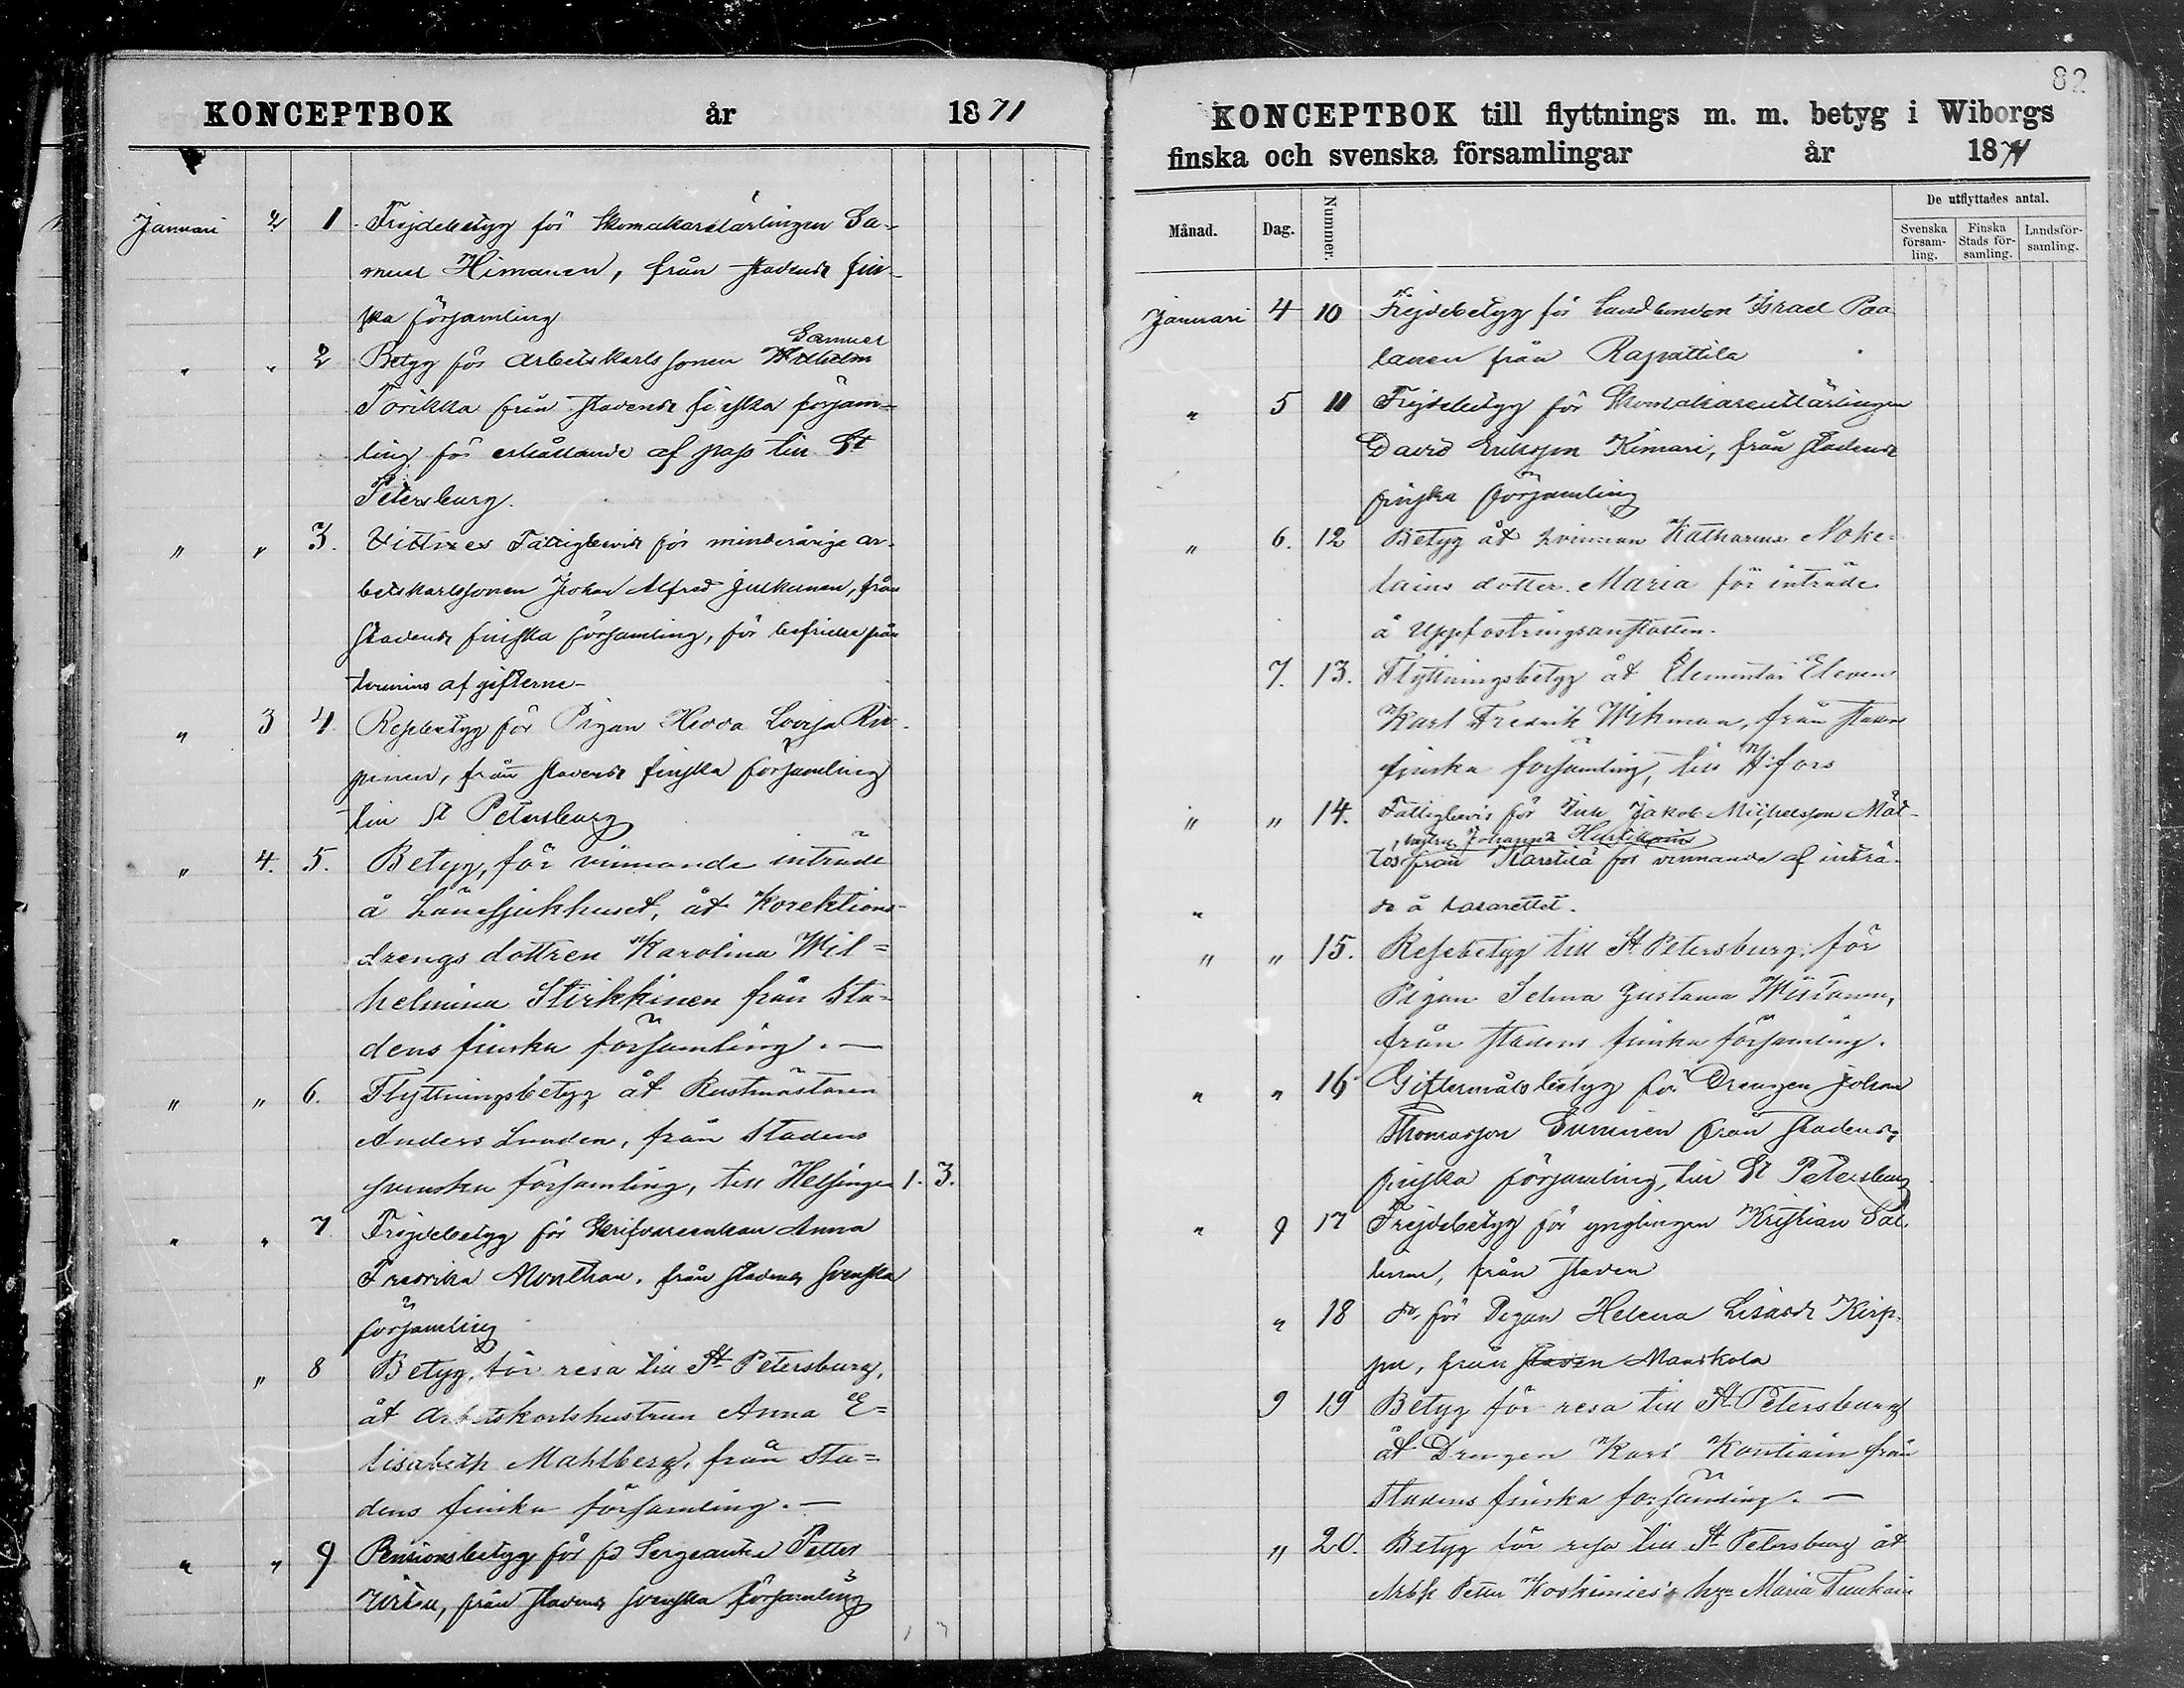 KONCEPTBOK år 1871
Januari 2 1. Frejdebetyg för Skomakarelärlingen Sa-
muel Himanen, från stadens fin-
ska församling
" " 2 Betyg för arbetskarlssonen Samuel
Torikka från stadens finska försam=
ling för erhållande af pass till St
Petersburg.
" " 3. Fattigbevis för minderårige ar-
betskarlssonen Johan Alfred Julkunen, från
stadens finska församling, för befrielse från
termins afgifterne-
" 3 4. Resebetyg för Pigan Hedda Lovisa
från stadens finska församling
till St Petersburg
" 4. 5. Betyg, för vinnande inträde
å Länesjukhuset, åt Korektions-
drengs dottren Karolina Wil=
helmina Stirkkinen från Sta=
dens finska församling. —
" " 6. Flyttningsbetyg åt Rustmästaren
Anders Lunden, från Stadens
svenska församling, till Helsinge 1. 3.
" " 7. Frejdebetyg för Anna
Fredrika Monthan, från stadens svenska
församling
" 8 Betyg, för resa till St Petersburg,
åt Arbetskarlshustrun Anna E=
lisabeth Mahlberg, från Sta=
dens finska församling. —
" " 9 Pensionsbetyg för fd Sergeanten Petter
från stadens svenska församling
82
KONCEPTBOK till flyttnings m. m. betyg i Wiborgs
finska och svenska församlingar år 1871
Månad. Dag. Nummer. De utflyttades antal.
Svenska försam-ling. Finska Stads för-samling. Landsför-samling.
Januari 4 10 Frejdebetyg för Landbonden Israel Paa
lanen från Rapattila
" 5 11 Frejdebetyg för Skomakarelärlingen
David Eriksson Kimari, från stadens
finska församling
" 6. 12 Betyg åt kvinnan Katharina Noke-
lains dotter Maria för inträde
å Uppfostringsanstalten.
7. 13. Flyttningsbetyg åt Elementar Eleven
Karl Fredrik Wikman, från stadens
finska församling, till H:fors
" " 14. Fattigbevis för Jakob Michelsson Mät-
hustru Johanna
tös från Karstilä för vinnande af inträ-
" de å Lasarettet.
" " 15. Resebetyg till St Petersburg för
Pigan Selma Gustava
från stadens finska församling.
" " 16 Giftermålsbetyg för Drengen Johan
Thomasson Summen från stadens
finska församling, till St Petersburg
" 9 17 Frejdebetyg för ynglingen Kristian Sal
från staden
" 18 do för Pigan Helena Kirp
pu, från staden Manskola
9 19 Betyg för resa till St Petersburg
åt Drengen Karl Kontiain från
Stadens finska församling. —
" 20. Betyg för resa till St Petersburg åt
Arbk Petter Koskimies's Maria